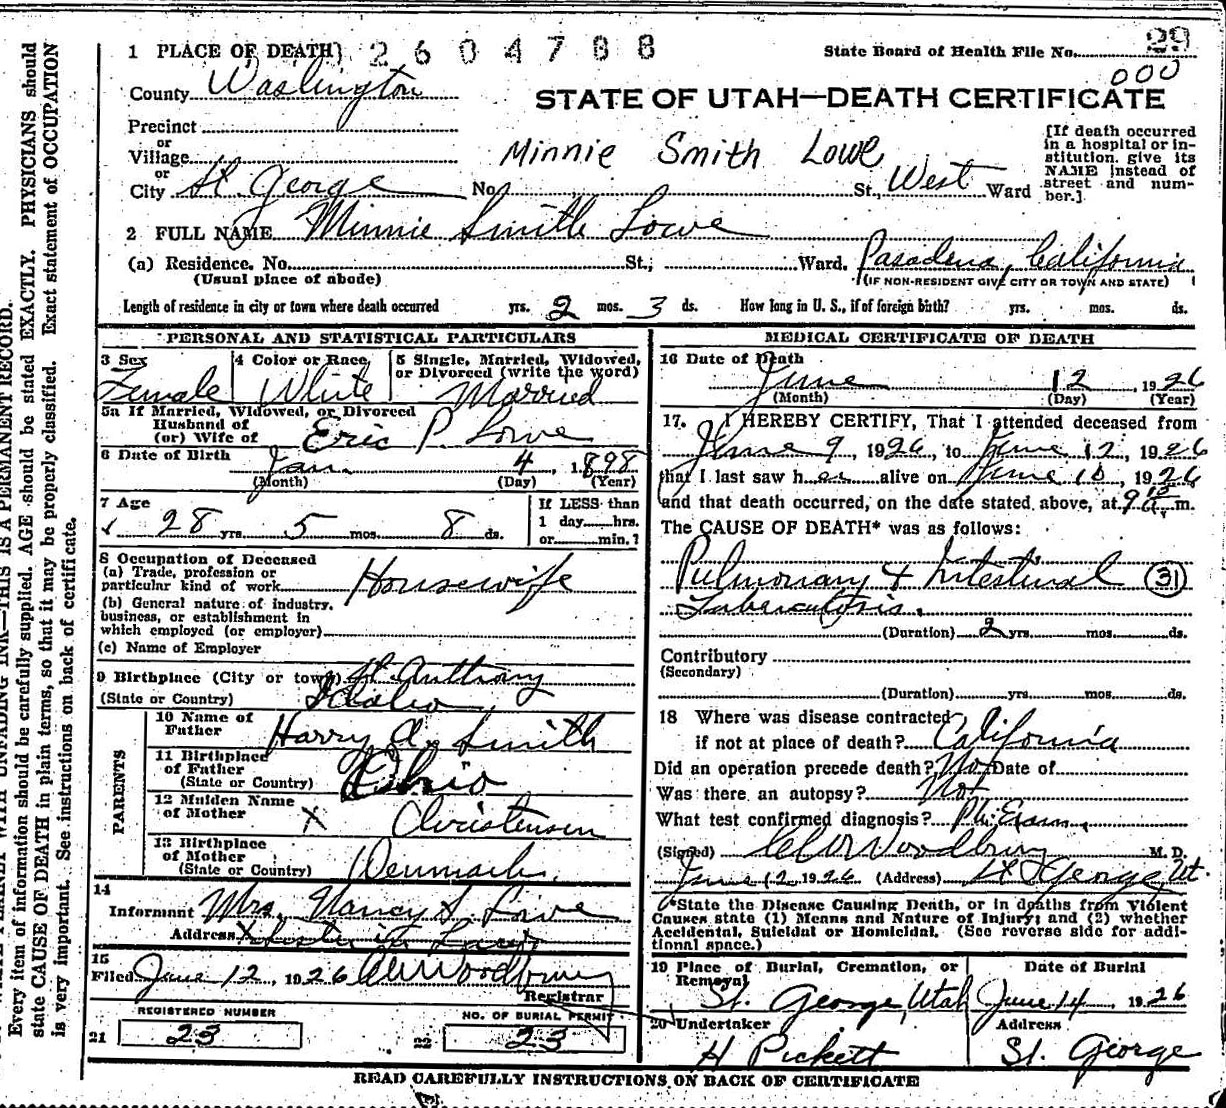 1 PLACE OF DEATH 2604788
State Board of Health File No. 29
000
County Washington
STATE OF UTAH—DEATH CERTIFICATE
Precinct
or
Village
or
City St George No. St., West Ward
Minnie Smith Lowe
[If death occurred
in a hospital or in-
stitution. give its
NAME instead of
street and num-
ber.]
2 FULL NAME Minnie Smith Lowe
(a) Residence. No. St.; Ward. Pasadena, California
(Usual place of abode) (IF NON-RESIDENT GIVE CITY OR TOWN AND STATE)
Length of residence in city or town where death occurred yrs. 2 mos. 3 ds. How long in U. S., if of foreign birth? yrs. mos. ds.
PERSONAL AND STATISTICAL PARTICULARS
3 Sex 4 Color or Race 5 Single, Married, Widowed,
or Divorced (write the word)
Female White Married
5a If Married, Widowed, or Divorced
Husband of
(or) Wife of Eric P. Lowe
6 Date of Birth Jan 4, 1898
(Month) (Day) (Year)
7 Age If LESS than
28 yrs. 5 mos. 8 ds. 1 day hrs.
or min.?
8 Occupation of Deceased
(a) Trade, profession or
particular kind of work Housewife
(b) General nature of industry,
business, or establishment in
which employed (or employer)
(c) Name of Employer
9 Birthplace (City or town) St Anthony
(State or Country) Idaho
PARENTS
10 Name of
Father Harry A. Smith
11 Birthplace
of Father
(State or Country) Ohio
12 Maiden Name
of Mother X Christensen
13 Birthplace
of Mother
(State or Country) Denmark.
14
Informant Mrs. Nancy S. Lowe
Address
15
Filed June 12, 1926 Woodbury
Registrar
REGISTERED NUMBER NO. OF BURIAL PERMIT
21 23 22 23
MEDICAL CERTIFICATE OF DEATH
16 Date of Death
June 12, 1926
(Month) (Day) (Year)
17. I HEREBY CERTIFY, That I attended deceased from
June 9, 1926, to June 12, 1926
that I last saw her alive on June 10, 1926
and that death occurred, on the date stated above, at 9 a. m.
The CAUSE OF DEATH* was as follows:
Pulmonary & Intestinal (31)
Tuberculosis.
(Duration) 2 yrs. mos. ds.
Contributory
(Secondary)
(Duration) yrs. mos. ds.
18 Where was disease contracted
if not at place of death? California
Did an operation precede death? No Date of
Was there an autopsy? No
What test confirmed diagnosis? Ph. Exam.
(Signed) Woodbury M. D.
June 12, 1926 (Address) St George, Ut.
*State the Disease Causing Death, or in deaths from Violent
Causes state (1) Means and Nature of Injury; and (2) whether
Accidental, Suicidal or Homicidal. (See reverse side for addi-
tional space.)
19 Place of Burial, Cremation, or
Removal Date of Burial
St. George, Utah June 14 1926
20 Undertaker Address
H Pickett St. George
READ CAREFULLY INSTRUCTIONS ON BACK OF CERTIFICATE
UNFADING INK—THIS IS A PERMANENT RECORD.
Every item of information should be carefully supplied. AGE should be stated EXACTLY. PHYSICIANS should
state CAUSE OF DEATH in plain terms, so that it may be properly classified. Exact statement of OCCUPATION
is very important. See instructions on back of certificate.